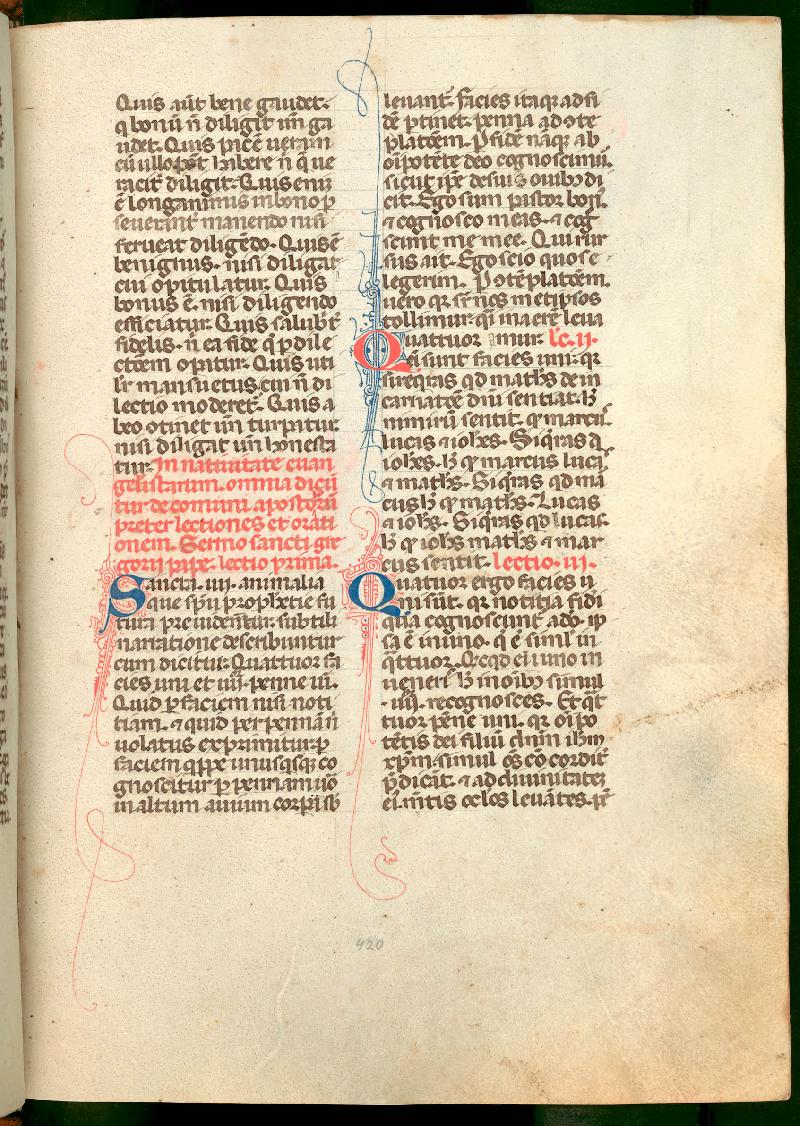 Quis aut̄ bene gaudet.
q̇ bonū n̄ diligit un̄ ga
udet. Quis pacē ueram
cū ullo pōt habere n̄ q̇ ue
racit̄ diligit. Quis enī
ē longanimis in bono p̱
seuerant̄ manendo nisi
ferueat diligēdo. Quis ē
benignus. nisi diligat
cui opitulatur. Quis
bonus ē. nisi diligendo
efficiatur. Quis salubr̄t̄
fidelis. n̄ ea fide q̄ p̱ dile
ctōem opitur. Quis uti
lr̄ mansuetus. cui n̄ di
lectio moderet̄. Quis a
beo ɔtinet un̄ turpitur.
nisi diligat un̄ honesta
tur. In natiuitate euan
gelistarum. omnia dicū
tur de comuni apostolorū
preter lectiones et orati
onem. Sermo sancti gre
gorii pape. lectio prima.
Sancta .iiii. animalia
que spū prophetie fu
tura preuidentur. subtili
narratione describuntur
cum dicitur. Quattuor fa
cies uni et .iiii. penne uni.
Quid p̱ faciem nisi noti
tiam. ⁊ quid per pennā n̄
uolatus exprimitur. p̱
faciem q̇ppe unusq̇sq̨ co
gnoscitur p̱ pennam uō
in altum auium corpa sb̄
leuant̄. Facies itaq̨ ad fi
dē p̱tinet. penna ad ɔte
platōem. P̱ fidē nāq̨ ab
oīpotēte deo cognoscimur.
sicut ip̄e de suis ouibȝ di
cit. Ego sum pastor bon.
⁊ cognosco meas. ⁊ cog
scunt me mee. Qui rur
sus ait. Ego scio quos e
legerim. P̱ ɔtēplatōem.
uero q̨ sr̄ nos metipsos
tollimur. q̄i in aerē leua
Quattuor mur. lc̄. ii.
eī sunt facies uni. q̨
si req̇ras qd matħs de in
carnatōe dn̄i sentiat. ħ
nimirū sentit. q̨ marcus
lucas ⁊ ioħes. Si q̇ras qd
ioħes. ħ q̨ marcus lucas
⁊ matħs. Si q̇ras qd mar
cus ħ q̨ matħs. Lucas
⁊ ioħs. Si q̇ras qd lucas.
ħ q̨ ioħs matħs ⁊ mar
cus sentit. lectio .iii.
Quatuor ergo facies u
ni sūt. q̨ notitia fidi
qua cognoscunt̄ a dō. ip̄
sa ē in uno. q̄ ē siml̄ in
q̇ttuor. Qcqd eī in uno in
ueneris ħ in oībȝ simul
.iiii. recognosces. Et q̇t
tuor pēne uni. q̨ oīpo
tētis dei filiū dn̄m iħm
xp̄m simul oēs cōcordit̄
p̄dicāt. ⁊ ad diuinitatē
ei. mētis oclos leuātes. pē
420